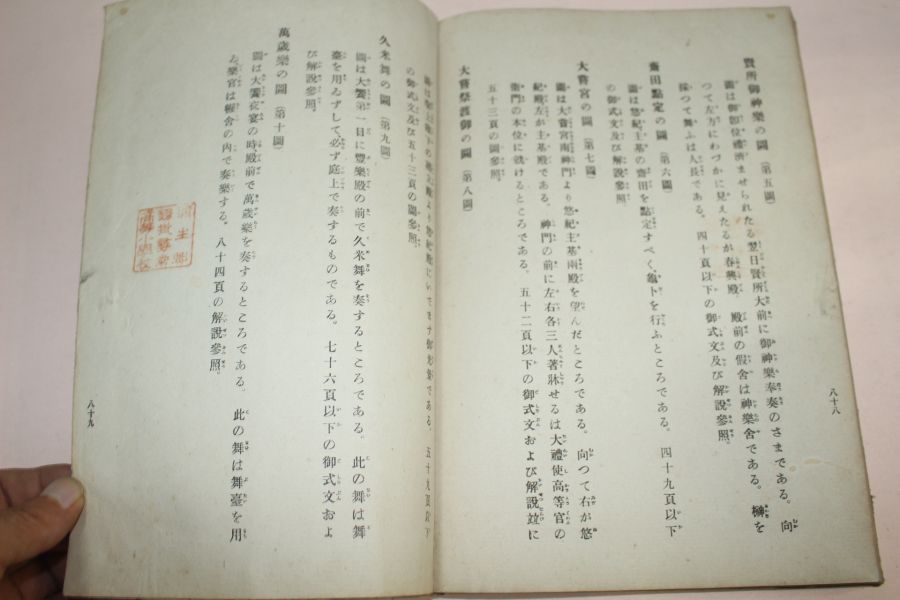 賢所御神樂の圖（第五圖）
圖は御卽位禮濟ませられたる翌日賢所大前に御神樂奉奏のさまである。向
つて左方にわづかに見えたるが春興殿、殿前の假舍は神樂舍である。榊を
採つて舞ふは人長である。四十頁以下の御式文及び解說參照。
齋田點定の圖（第六圖）
圖は悠紀主基の齋田を點定すべく、龜卜を行ふところである。四十九頁以下
の御式文及び解說參照。
大嘗宮の圖（第七圖）
圖は大嘗宮南神門より悠紀主基兩殿を望んだところである。向つて右が悠
紀殿左が主基殿である。神門の前に左右各三人著牀せるは大禮使高等官の
衞門の本位に就けるところである。五十二頁以下の御式文および解說竝に
五十三頁の圖參照。
大嘗祭渡御の圖（第八圖）
八十八
である。五十九頁以下
の御式文及び五十三頁の圖參照。
久米舞の圖（第九圖）
圖は大饗第一日に豐樂殿の前で久米舞を奏するところである。此の舞は舞
臺を用ゐずして、必ず庭上で奏するものである。七十六頁以下の御式文およ
び解說參照。
萬歲樂の圖（第十圖）
圖は大饗夜宴の時、殿前で萬歲樂を奏するところである。此の舞は舞臺を用
ゐ、樂官は幄舍の內で奏樂する。八十四頁の解說參照。
八十九